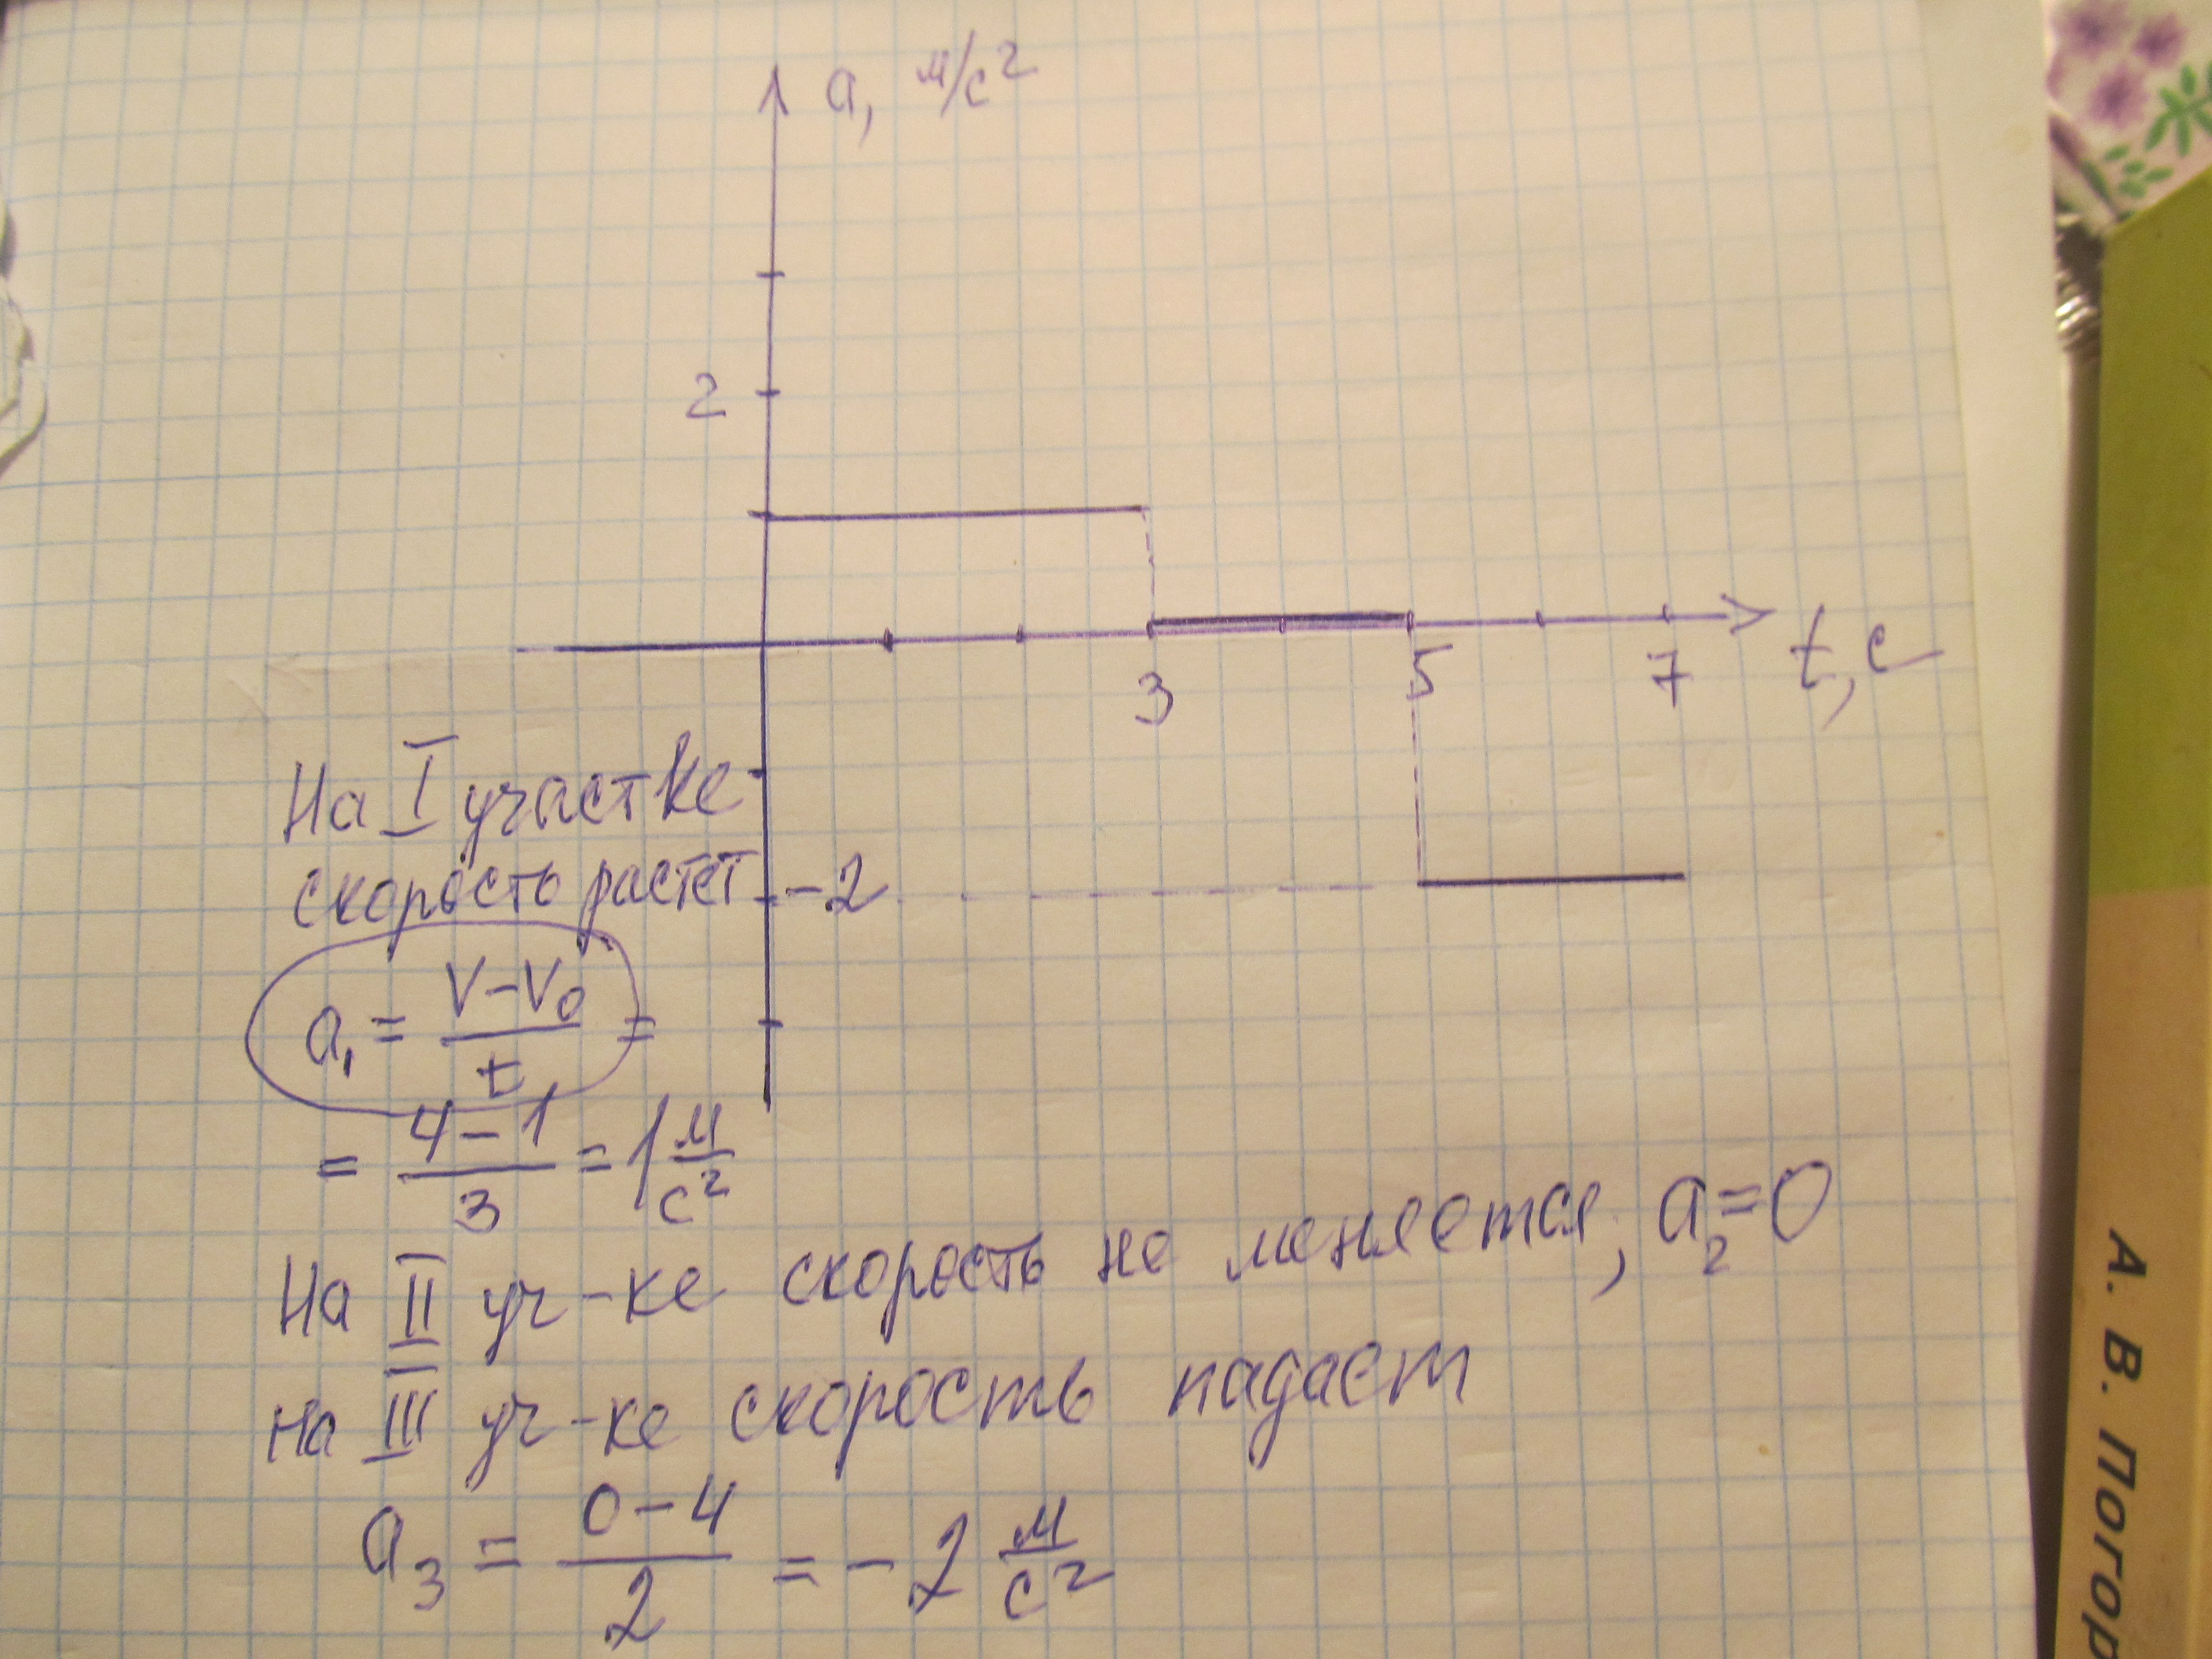 a, м/с²
2
3 5 7 t, с
На I участке
скорость растет
-2
a₁ = (V-V₀)/t =
= (4-1)/3 = 1 м/с²
На II уч-ке скорость не меняется, a₂=0
На III уч-ке скорость падает
a₃ = (0-4)/2 = -2 м/с²
А. В. Погор